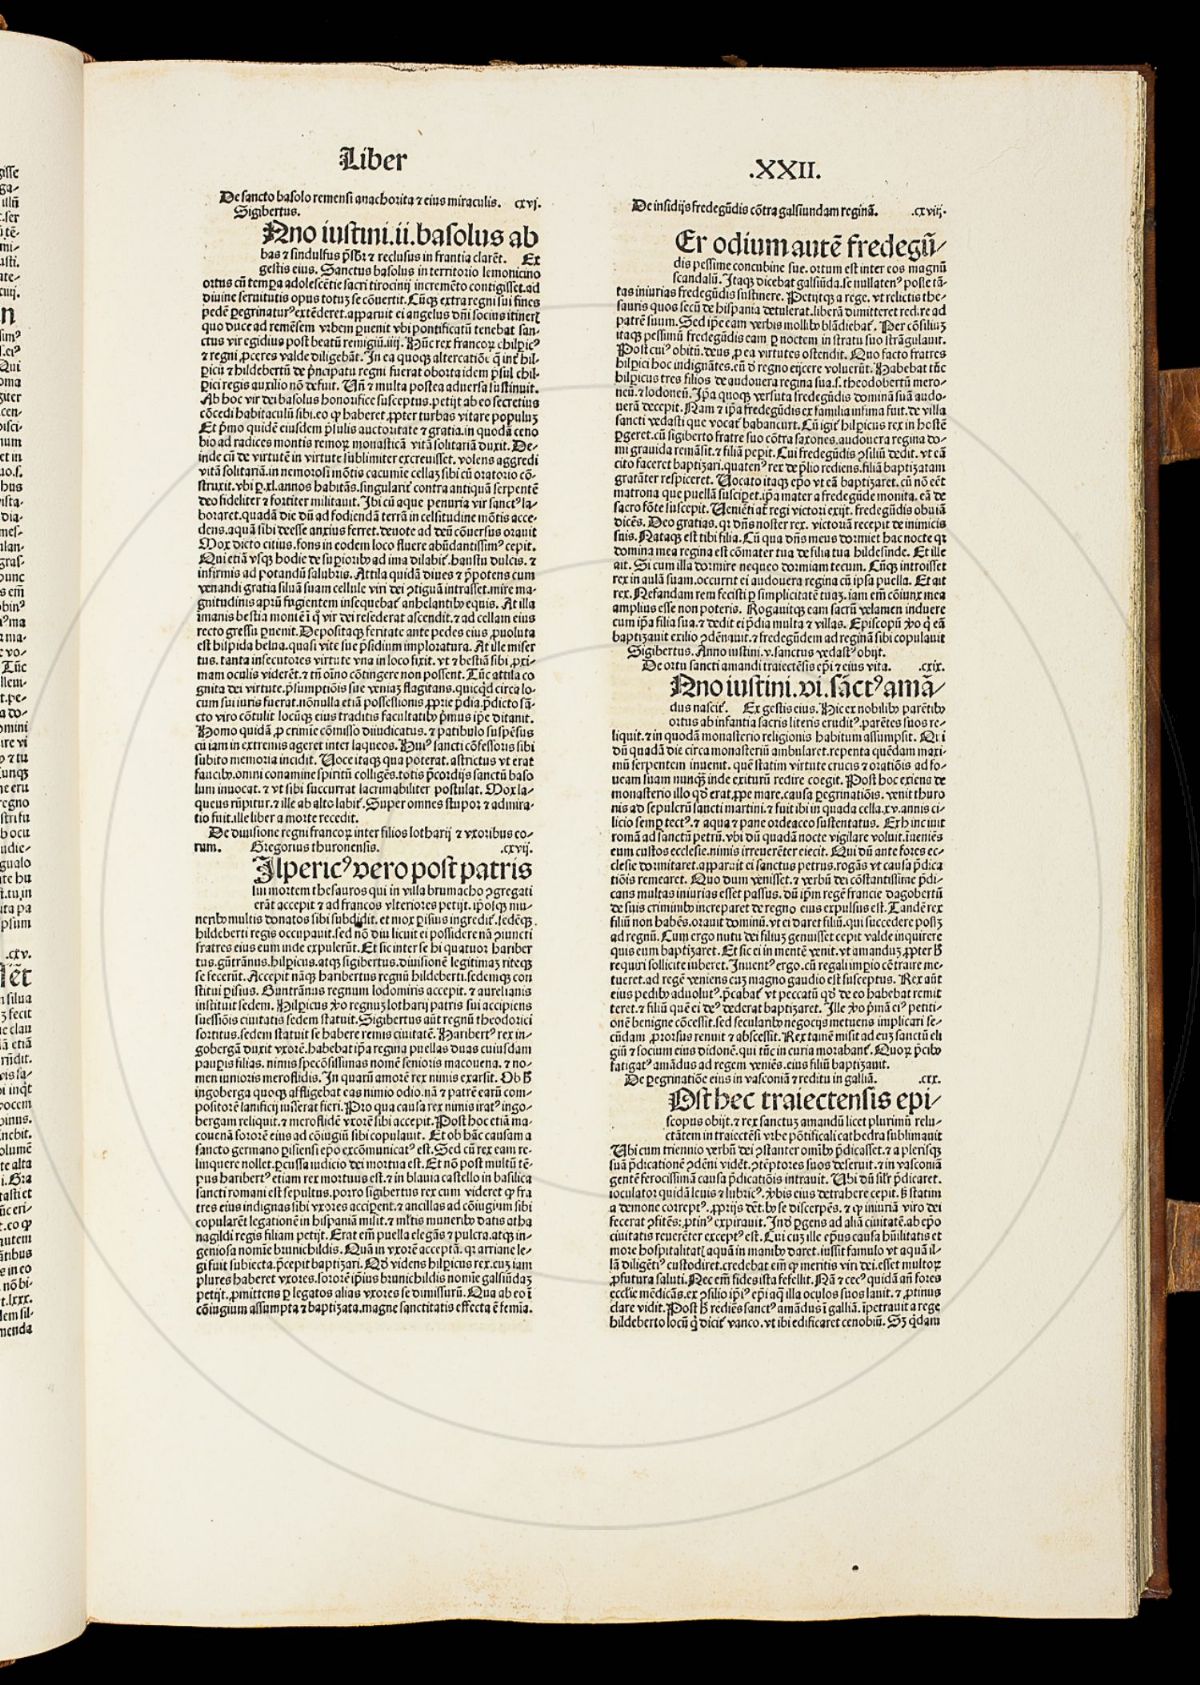 Liber
.XXII.
De sancto basolo remensi anachorita ⁊ eius miraculis. cxvj.
Sigibertus.
Nno iustini.ii.basolus ab
bas ⁊ sindulfus ṕsbr̄ ⁊ reclusus in frantia clarēt. Ex
gestis eius. Sanctus basolus in territorio lemonicino
ortus cū temꝑa adolescētie sacri tirocinij incremēto contigisset.ad
diuine seruitutis opus totuꝫ se cōuertit. Cūqꝫ extra regni sui fines
pedē ꝑegrinaturꝰ extēderet.apparuit ei angelus dn̄i socius itineri
quo duce ad remēsem vrbem ꝑuenit vbi pontificatū tenebat san-
ctus vir egidius post beatū remigiū.iiij. Hūc rex francoꝝ chilꝑicꝰ
⁊ regni ꝓceres valde diligebāt. In ea quoqꝫ altercatiōe q̄ int̄ hil-
ꝑicū ⁊ hildebertū de ṗncipatu regni fuerat oborta idem ṕsul chil-
ꝑici regis auxilio nō defuit. Vn̄ ⁊ multa postea aduersa sustinuit.
Ab hoc vir dei basolus honorifice susceptus.petijt ab eo secretius
cōcedi habitaculū sibi.eo ꝙ haberet ꝓpter turbas vitare populuꝫ
Et ṗmo quidē eiusdem ṕsulis auctoritate ⁊ gratia.in quodā ceno
bio ad radices montis remoꝝ monasticā vitā solitariā duxit. De-
inde cū de virtute in virtute sublimiter excreuisset.volens aggredi
vitā solitariā.in nemorosi mōtis cacumine cellaꝫ sibi cū oratorio cō-
struxit.vbi ꝑ.xl.annos habitās.singularit̄ contra antiquā serpentē
deo fideliter ⁊ fortiter militauit. Ibi cū aque penuria vir sanctꝰ la-
boraret.quadā die dū ad fodiendā terrā in celsitudine mōtis acce-
dens.aquā sibi deesse anxius ferret.deuote ad deū cōuersus orauit
Mox dicto citius.fons in eodem loco fluere abūdantissimꝰ cepit.
Qui etiā vsqꝫ hodie de suꝑioribꝰ ad ima dilabit̄.haustu dulcis.⁊
infirmis ad potandū salubris. Attila quidā diues ⁊ ṕpotens cum
venandi gratia siluā suam cellule viri dei ꝯtiguā intrasset.mire ma-
gnitudinis aprū fugientem insequebat̄ anhelantibꝰ equis. At illa
īmanis bestia montē ī q̄ vir dei resederat ascendit.⁊ ad cellam eius
recto gressu ꝑuenit. Depositaqꝫ feritate ante pedes eius ꝓuoluta
est hispida belua.quasi vite sue ṕsidium imploratura. At ille miser
tus.tanta insecutores virtute vna in loco fixit.vt ⁊ bestiā sibi ꝓxi-
mam oculis viderēt.⁊ tn̄ oīno cōtingere non possent. Tūc attila co
gnita dei virtute.ṕsumptiōis sue veniaꝫ flagitans.quicqd̄ circa lo-
cum sui iuris fuerat.nōnulla etiā possessionis ꝓprie ṕdia.ṕdicto sā-
cto viro cōtulit locūqꝫ eius traditis facultatibꝰ ṗmus ip̄e ditauit.
Homo quidā ꝓ crimīe cōmisso diiudicatus.⁊ patibulo suspēsus
cū iam in extremis ageret inter laqueos. Huiꝰ sancti cōfessoris sibi
subito memoria incidit. Uoce itaqꝫ qua poterat.astrictus vt erat
faucibꝰ.omni conamine spiritū colligēs.totis ṕcordijs sanctū baso
lum inuocat.⁊ vt sibi succurrat lacrimabiliter postulat. Mox la-
queus rūpitur.⁊ ille ab alto labit̄. Super omnes stupor ⁊ admira-
tio fuit.ille liber a morte recedit.
De diuisione regni francoꝝ inter filios lotharij ⁊ vxoribus eo-
rum. Gregorius thuronensis. .cxvij.
Ilpericꝰ vero post patris
sui mortem thesauros qui in villa brumacho ꝯgregati
erāt accepit ⁊ ad francos vlteriores petijt.ip̄osqꝫ mu-
neribꝰ multis donatos sibi subdidit.et mox ꝑisius ingredit̄.sedēqꝫ
hildeberti regis occupauit.sed nō diu licuit ei possidere nā ꝯiuncti
fratres eius eum inde expulerūt. Et sic inter se hi quatuor hariber
tus.gūtrānus.hilꝑicus.atqꝫ sigibertus.diuisionē legitimaꝫ riteqꝫ
se fecerūt. Accepit nāqꝫ haribertus regnū hildeberti.sedemqꝫ con
stitui ꝑisius. Guntrānus regnum lodomiris accepit.⁊ aurelianis
instituit sedem. Hilꝑicus ꝟo regnuꝫ lotharij patris sui accipiens
suessiōis ciuitatis sedem statuit. Sigibertus aūt regnū theodorici
sortitus.sedem statuit se habere remis ciuitatē. Haribertꝰ rex in-
gobergā duxit vxorē.habebat ip̄a regina puellas duas cuiusdam
pauꝑis filias. nimis specōsissimas nomē senioris macouena.⁊ no-
men iunioris meroflidis. In quarū amorē rex nimis exarsit. Ob ħ
ingoberga quoqꝫ affligebat eas nimio odio.nā ⁊ patrē earū com-
positorē lanificij iusserat fieri. Pro qua causa rex nimis iratꝰ ingo-
bergam reliquit.⁊ meroflidē vxorē sibi accepit. Post hoc etiā ma-
couenā sororē eius ad cōiugiū sibi copulauit. Et ob hāc causam a
sancto germano ꝑisiensi ep̄o excōmunicatꝰ est. Sed cū rex eam re-
linquere nollet.ꝑcussa iudicio dei mortua est. Et nō post multū tē-
pus haribertꝰ etiam rex mortuus est.⁊ in blauia castello in basilica
sancti romani est sepultus.porro sigibertus rex cum videret ꝙ fra
tres eius indignas sibi vxores acciꝑent.⁊ ancillas ad cōiugium sibi
copularēt legationē in hispaniā misit.⁊ ml̄tis muneribꝰ datis atha
nagildi regis filiam petijt. Erat em̄ puella elegās ⁊ pulcra.atqꝫ in-
geniosa nomīe brunichildis. Quā in vxorē acceptā.qꝛ arriane le-
gi fuit subiecta.ṕcepit baptizari. Qd̄ videns hilꝑicus rex.cuꝫ iam
plures haberet vxores.sororē ip̄ius brunichildis nomīe galsiūdaꝫ
petijt.ꝓmittens ꝑ legatos alias vxores se dimissurū. Qua ab eo ī
cōiugium assumpta ⁊ baptizata.magne sanctitatis effecta ē femīa.
De insidijs fredegūdis cōtra galsiundam reginā. .cxviij.
Er odium autē fredegū-
dis pessime concubine sue.ortum est inter eos magnū
scandalū. Itaqꝫ dicebat galsiūda.se nullatenꝰ posse tā-
tas iniurias fredegūdis sustinere. Petijtqꝫ a rege.vt relictis the-
sauris quos secū de hispania detulerat.liberā dimitteret redire ad
patrē suum. Sed ip̄e eam verbis mollibꝰ blādiebat̄. Per cōsiliuꝫ
itaqꝫ pessimū fredegūdis eam ꝑ noctem in stratu suo strāgulauit.
Post cuiꝰ obitū.deus ꝓ ea virtutes ostendit. Quo facto fratres
hilꝑici hoc indignātes.eū ꝺ regno eijcere voluerūt. Habebat tūc
hilꝑicus tres filios de audouera regina sua.s.theodobertū mero-
neū.⁊ lodoneū. Ip̄a quoqꝫ versuta fredegūdis dominā suā audo-
uerā decepit. Nam ⁊ ip̄a fredegūdis ex familia infima fuit.de villa
sancti vedasti que vocat̄ babancurt. Cū igit̄ hilꝑicus rex in hostē
ꝑgeret.cū sigiberto fratre suo cōtra saxones.audouera regina do-
mi grauida remāsit.⁊ filiā peꝑit. Cui fredegūdis ꝯsiliū dedit.vt eā
cito faceret baptizari.quatenꝰ rex de ṕlio rediens.filiā baptizatam
gratāter respiceret. Uocato itaqꝫ ep̄o vt eā baptizaret.cū nō eēt
matrona que puellā susciꝑet.ip̄a mater a fredegūde monita.eā de
sacro fōte suscepit. Ueniēti aūt regi victori exijt fredegūdis obuiā
dicēs. Deo gratias.qꝛ dn̄s noster rex. victoriā recepit de inimicis
suis. Nataqꝫ est tibi filia. Cū qua dn̄s meus dormiet hac nocte qꝛ
domina mea regina est cōmater tua de filia tua hildesinde. Et ille
ait. Si cum illa dormire nequeo dormiam tecum. Cūqꝫ introisset
rex in aulā suam.occurrit ei audouera regina cū ipsa puella. Et ait
rex. Nefandam rem fecisti ꝑ simplicitatē tuaꝫ.iam em̄ cōiunx mea
amplius esse non poteris. Rogauitqꝫ eam sacrū velamen induere
cum ip̄a filia sua.⁊ dedit ei ṕdia multa ⁊ villas. Episcopū ꝟo q̄ eā
baptizauit exilio ꝯdēnauit.⁊ fredegūdem ad reginā sibi copulauit
Sigibertus. Anno iustini.v.sanctus vedastꝰ obijt.
De ortu sancti amandi traiectēsis ep̄i ⁊ eius vita. .cxix.
Nno iustini.vi.sāctꝰ amā-
dus nascit̄. Ex gestis eius. Hic ex nobilibꝰ parētibꝰ
ortus ab infantia sacris literis eruditꝰ.parētes suos re-
liquit.⁊ in quodā monasterio religionis habitum assumpsit. Qui
dū quadā die circa monasteriū ambularet.repente quēdam maxi-
mū serpentem inuenit. quē statim virtute crucis ⁊ oratiōis ad fo-
ueam suam nunqꝫ inde exiturū redire coegit. Post hoc exiens de
monasterio illo qd̄ erat ꝓpe mare.causa ꝑegrinatiōis. venit thuro
nis ad sepulcrū sancti martini.⁊ fuit ibi in quada cella.xv.annis ci-
licio semꝑ tectꝰ.⁊ aqua ⁊ pane ordeaceo sustentatus. Exhinc iuit
romā ad sanctū petrū.vbi dū quadā nocte vigilare voluit.īueniēs
eum custos ecclesie.nimis irreuerēter eiecit. Qui dū ante fores ec-
clesie dormitaret.apparuit ei sanctus petrus.rogās vt causa ṕdica
tiōis remearet. Quo dum venisset.⁊ verbū dei cōstantissime ṕdi-
cans multas iniurias esset passus. dū ip̄m regē francie dagobertū
de suis criminibꝰ increparet de regno eius expulsus est. Tandē rex
filiū non habēs.orauit dominū.vt ei daret filiū.qui succedere posꝫ
ad regnū. Cum ergo nutu dei filiuꝫ genuisset cepit valde inquirere
quis eum baptizaret. Et sic ei in mentē venit.vt amanduꝫ ꝓpter ħ
requiri sollicite iuberet. Inuentꝰ ergo.cū regali imꝑio cōtraire me-
tueret.ad regē veniens cuꝫ magno gaudio est susceptus. Rex aūt
eius pedibꝰ aduolutꝰ.ṕcabat̄ vt peccatū qd̄ de eo habebat remit
teret.⁊ filiū quē ei deꝰ dederat baptizaret. Ille ꝟo ṗmā eiꝰ petiti-
onē benigne cōcessit.sed secularibꝰ negocijs metuens implicari se-
cūdam ꝓrorsus rennit ⁊ abscessit. Rex tamē misit ad euꝫ sanctū eli
giū ⁊ socium eius didonē.qui tūc in curia morabant̄. Quoꝝ ṕcibꝰ
fatigatꝰ amādus ad regem veniēs.eius filiū baptizauit.
De ꝑegrinatiōe eius in vasconiā ⁊ reditu in galliā. .cxx.
Ost hec traiectensis epi-
scopus obijt.⁊ rex sanctuꝫ amandū licet plurimū relu-
ctātem in traiectēsi vrbe pōtificali cathedra sublimauit
Ubi cum triennio verbū dei ꝯstanter omībꝰ ṕdicasset.⁊ a plerisqꝫ
suā ṕdicationē ꝯdēni vidēt.ꝯtēptores suos deseruit.⁊ in vasconiā
gentē ferocissimā causa ṕdicatiōis intrauit. Ubi dū sil̄r ṕdicaret.
ioculator quidā leuis ⁊ lubricꝰ.ꝟbis eius detrahere cepit. ħ statim
a demone correptꝰ.ꝓprijs dētibꝰ se discerpēs.⁊ ꝙ iniuriā viro dei
fecerat ꝯfitēs.ꝓtinꝰ expirauit. Inꝺ ꝑgens ad aliā ciuitatē.ab ep̄o
ciuitatis reuerēter exceptꝰ est. Cui cuꝫ ille ep̄us causa hūilitatis et
more hospitalitat̄ aquā in manibꝰ daret.iussit famulo vt aquā il-
lā diligētiꝰ custodiret.credebat em̄ ꝙ meritis viri dei.esset multoꝝ
ꝓfutura saluti. Nec em̄ fides ista fefellit. Nā ⁊ cecꝰ quidā an̄ fores
eccl̄ie mēdicās.ex ꝯsilio ip̄iꝰ ep̄i aq̄ illa oculos suos lauit.⁊ ꝓtinus
clare vidit. Post ħ rediēs sanctꝰ amādus ī galliā.īpetrauit a rege
hildeberto locū q̄ dicit̄ vanco.vt ibi edificaret cenobiū. Sꝫ q̇dam